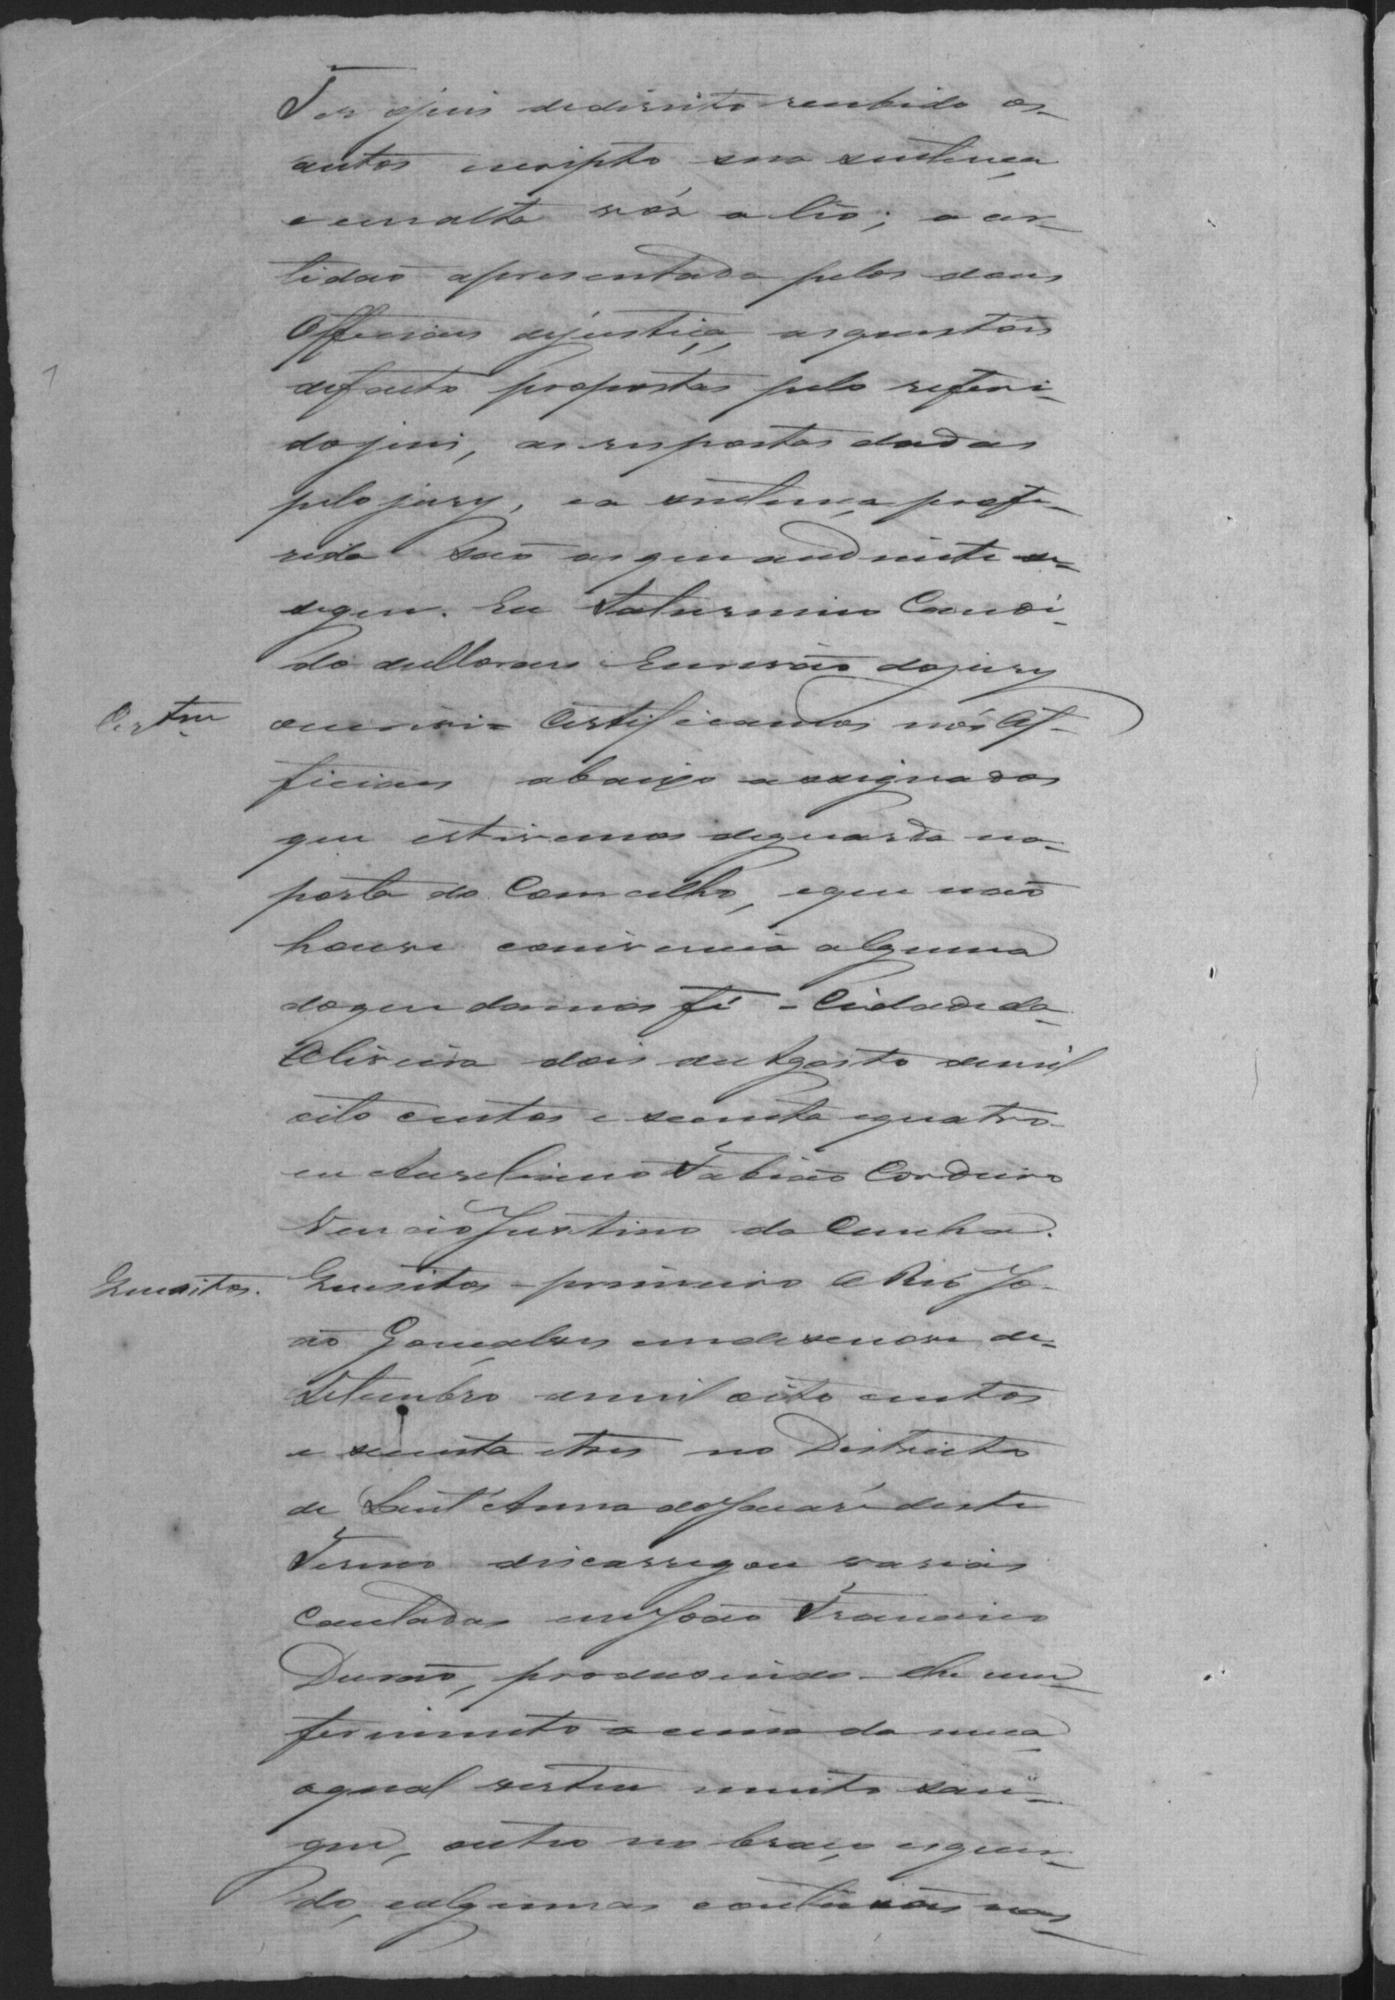 Ter o juis de direito recebido os
autos escripto sua sentença
e em alta vós a lêo; a cer-
tidaõ apresentada pelos dous
Officiaes de justiça, as questões
de facto propostas pelo referi-
do juis, as respostas dadas
pelo jury, e a sentença profe-
rida saõ as que
segue. Eu Saturnino Candi-
do de Moraes Escrivão do jury
Certm
o escrevi - Certificamos nós Of-
ficiaes abaixo assignados
que estivemos de guarda na
porta do Concelho, e que naõ
houve alguma
do que damos fé - Cidade da
Oliveira dois de Agosto de mil
oito centos e secenta e quatro
eu Aureliano Fabiaõ Cordeiro
Venancio Justino da Cunha.
Quesitos.
Quesitos - primeiro O Réo Jo-
aõ Gonçalves em desenove de
Setembro de mil oito centos
e secenta e tres no Districto
de Sant'Anna do Jacaré deste
Termo descarregou varias
cacetadas em Joaõ Francisco
produsindo-lhe um
ferimento acima da nuca
o qual verteu muito san-
gue, outro no braço esquer-
do, e algumas contusões nas